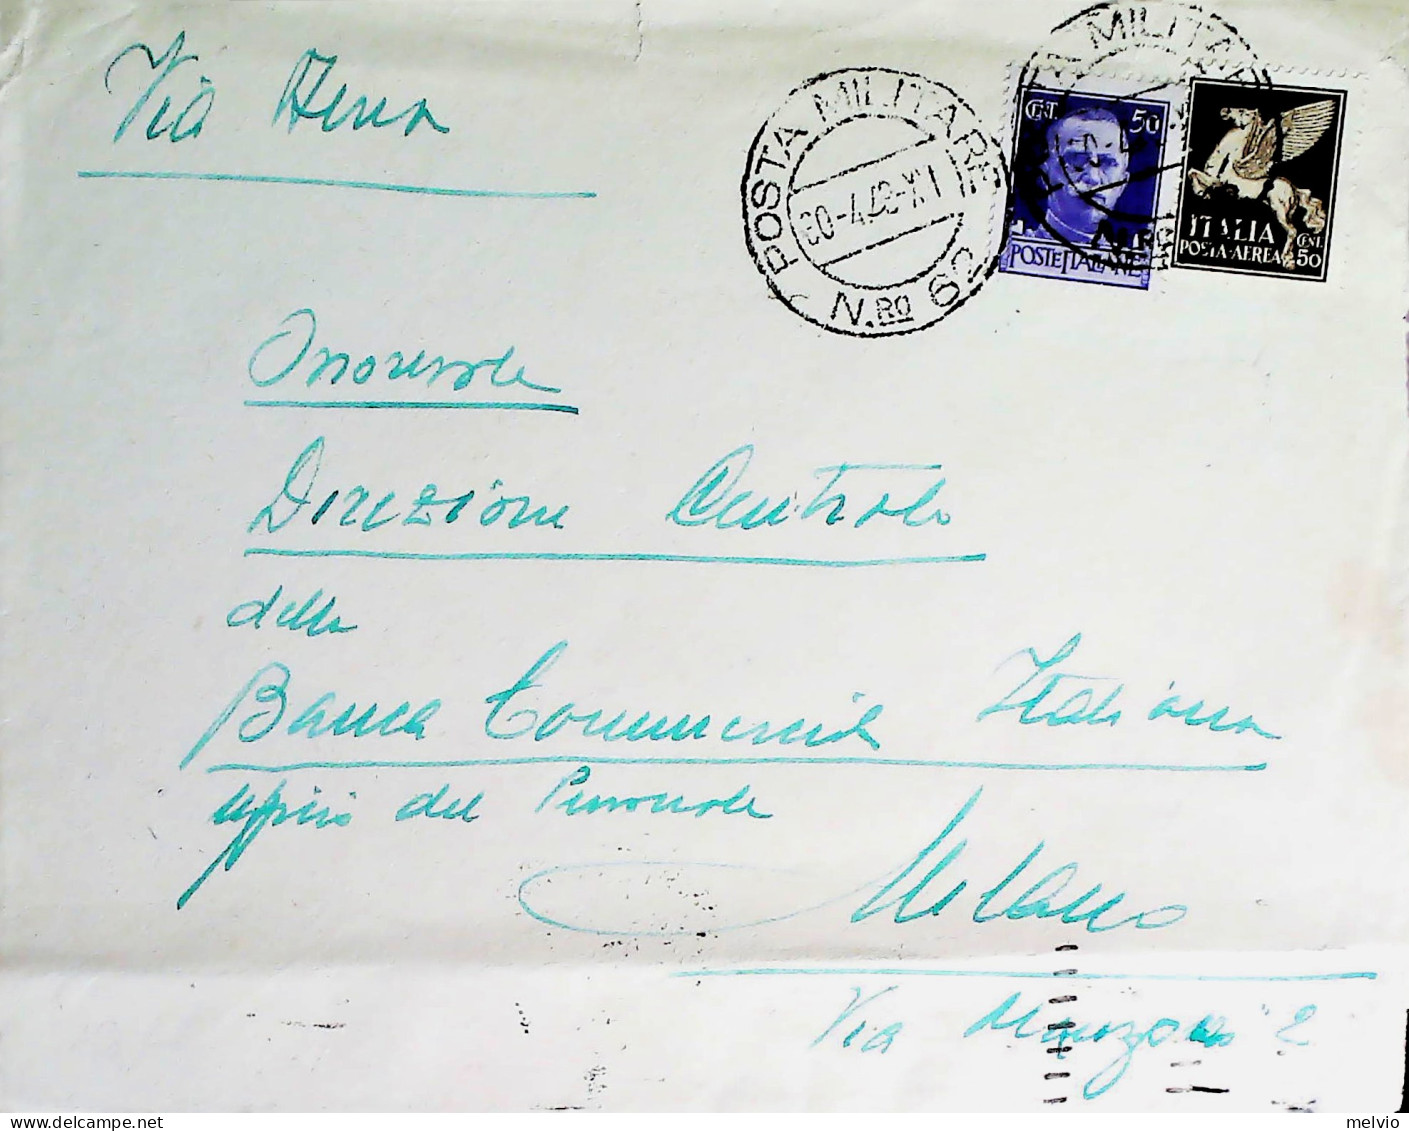 Via Aerea
POSTA MILITARE
N.RO 62
CENT. 50
POSTE ITALIANE
POSTA MILITARE
N.RO
ITALIA
POSTA·AEREA
CENT. 50
Onorevole
Direzione Centrale
della
Banca Commerciale Italiana
Ufficio del Personale
Milano
Via Manzoni 2
melvio